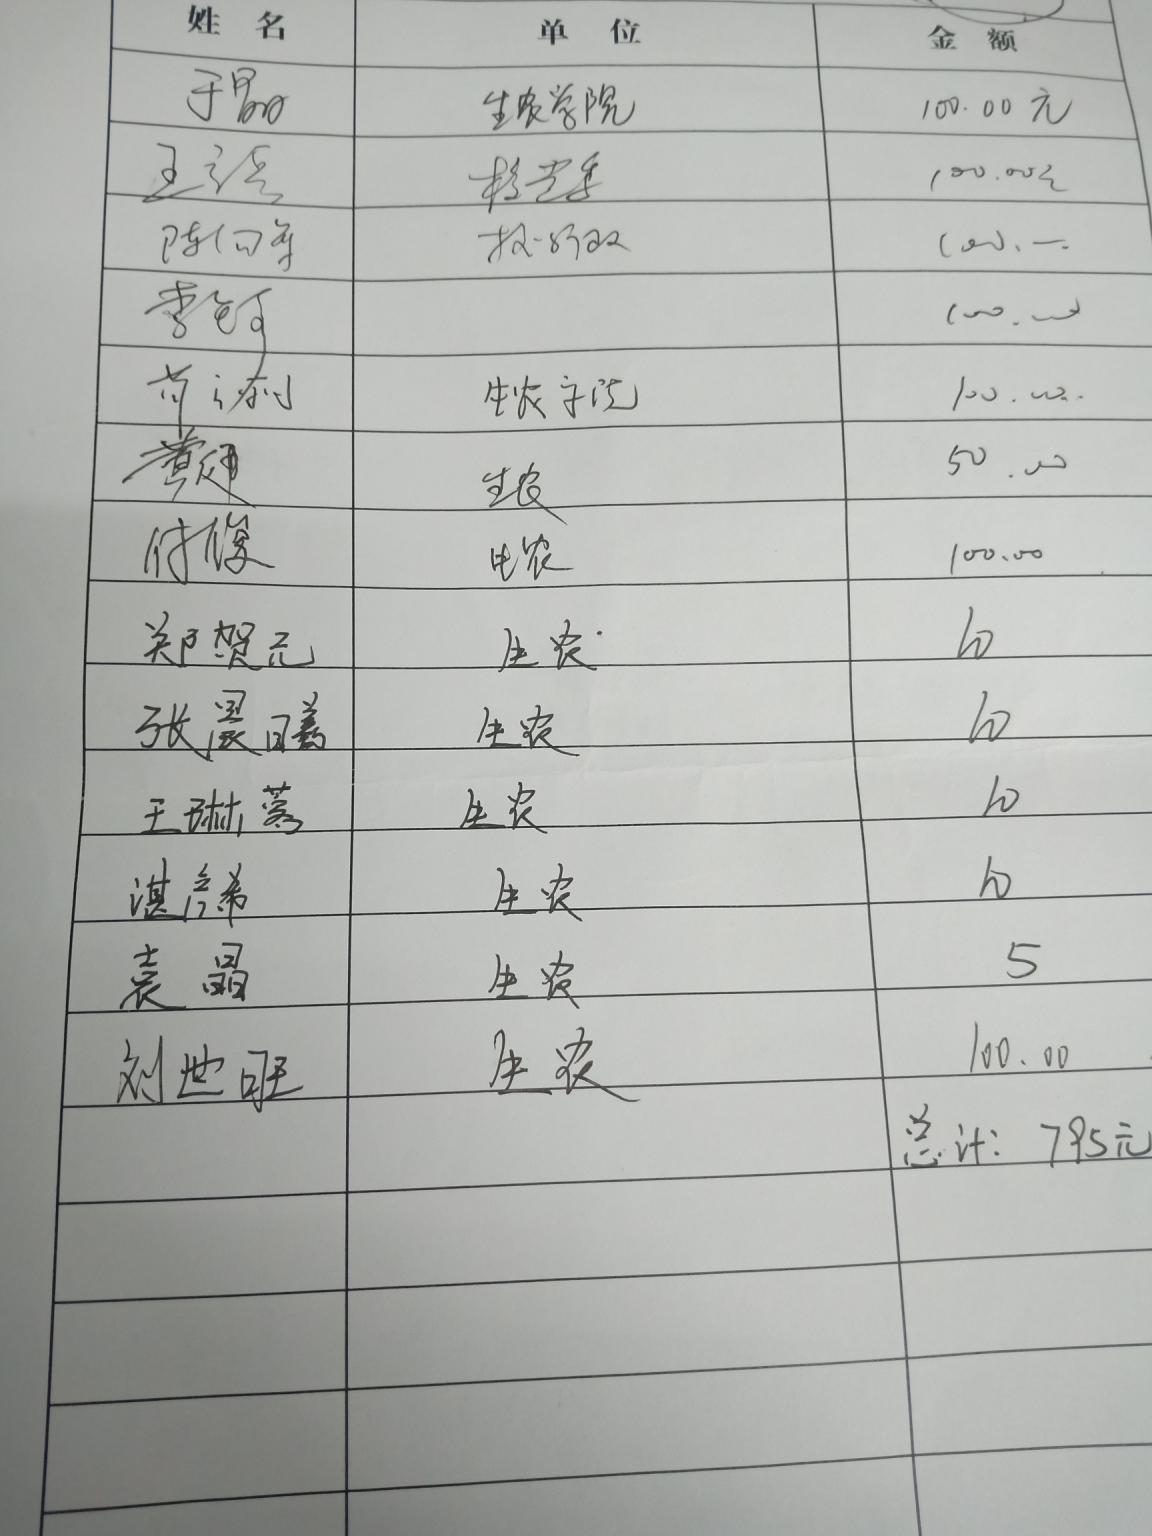 姓 名 单 位 金 额
于晶 生农学院 100.00元
王 校党委 100.00元
陈 100.一
李 100.00
生农学院 100.00
黄 生农 50.00
付俊 生农 100.00
郑贺元 生农 10
张晨曦 生农 10
王琳蓉 生农 10
湛 希 生农 10
袁晶 生农 5
刘世旺 生农 100.00
总计: 795元